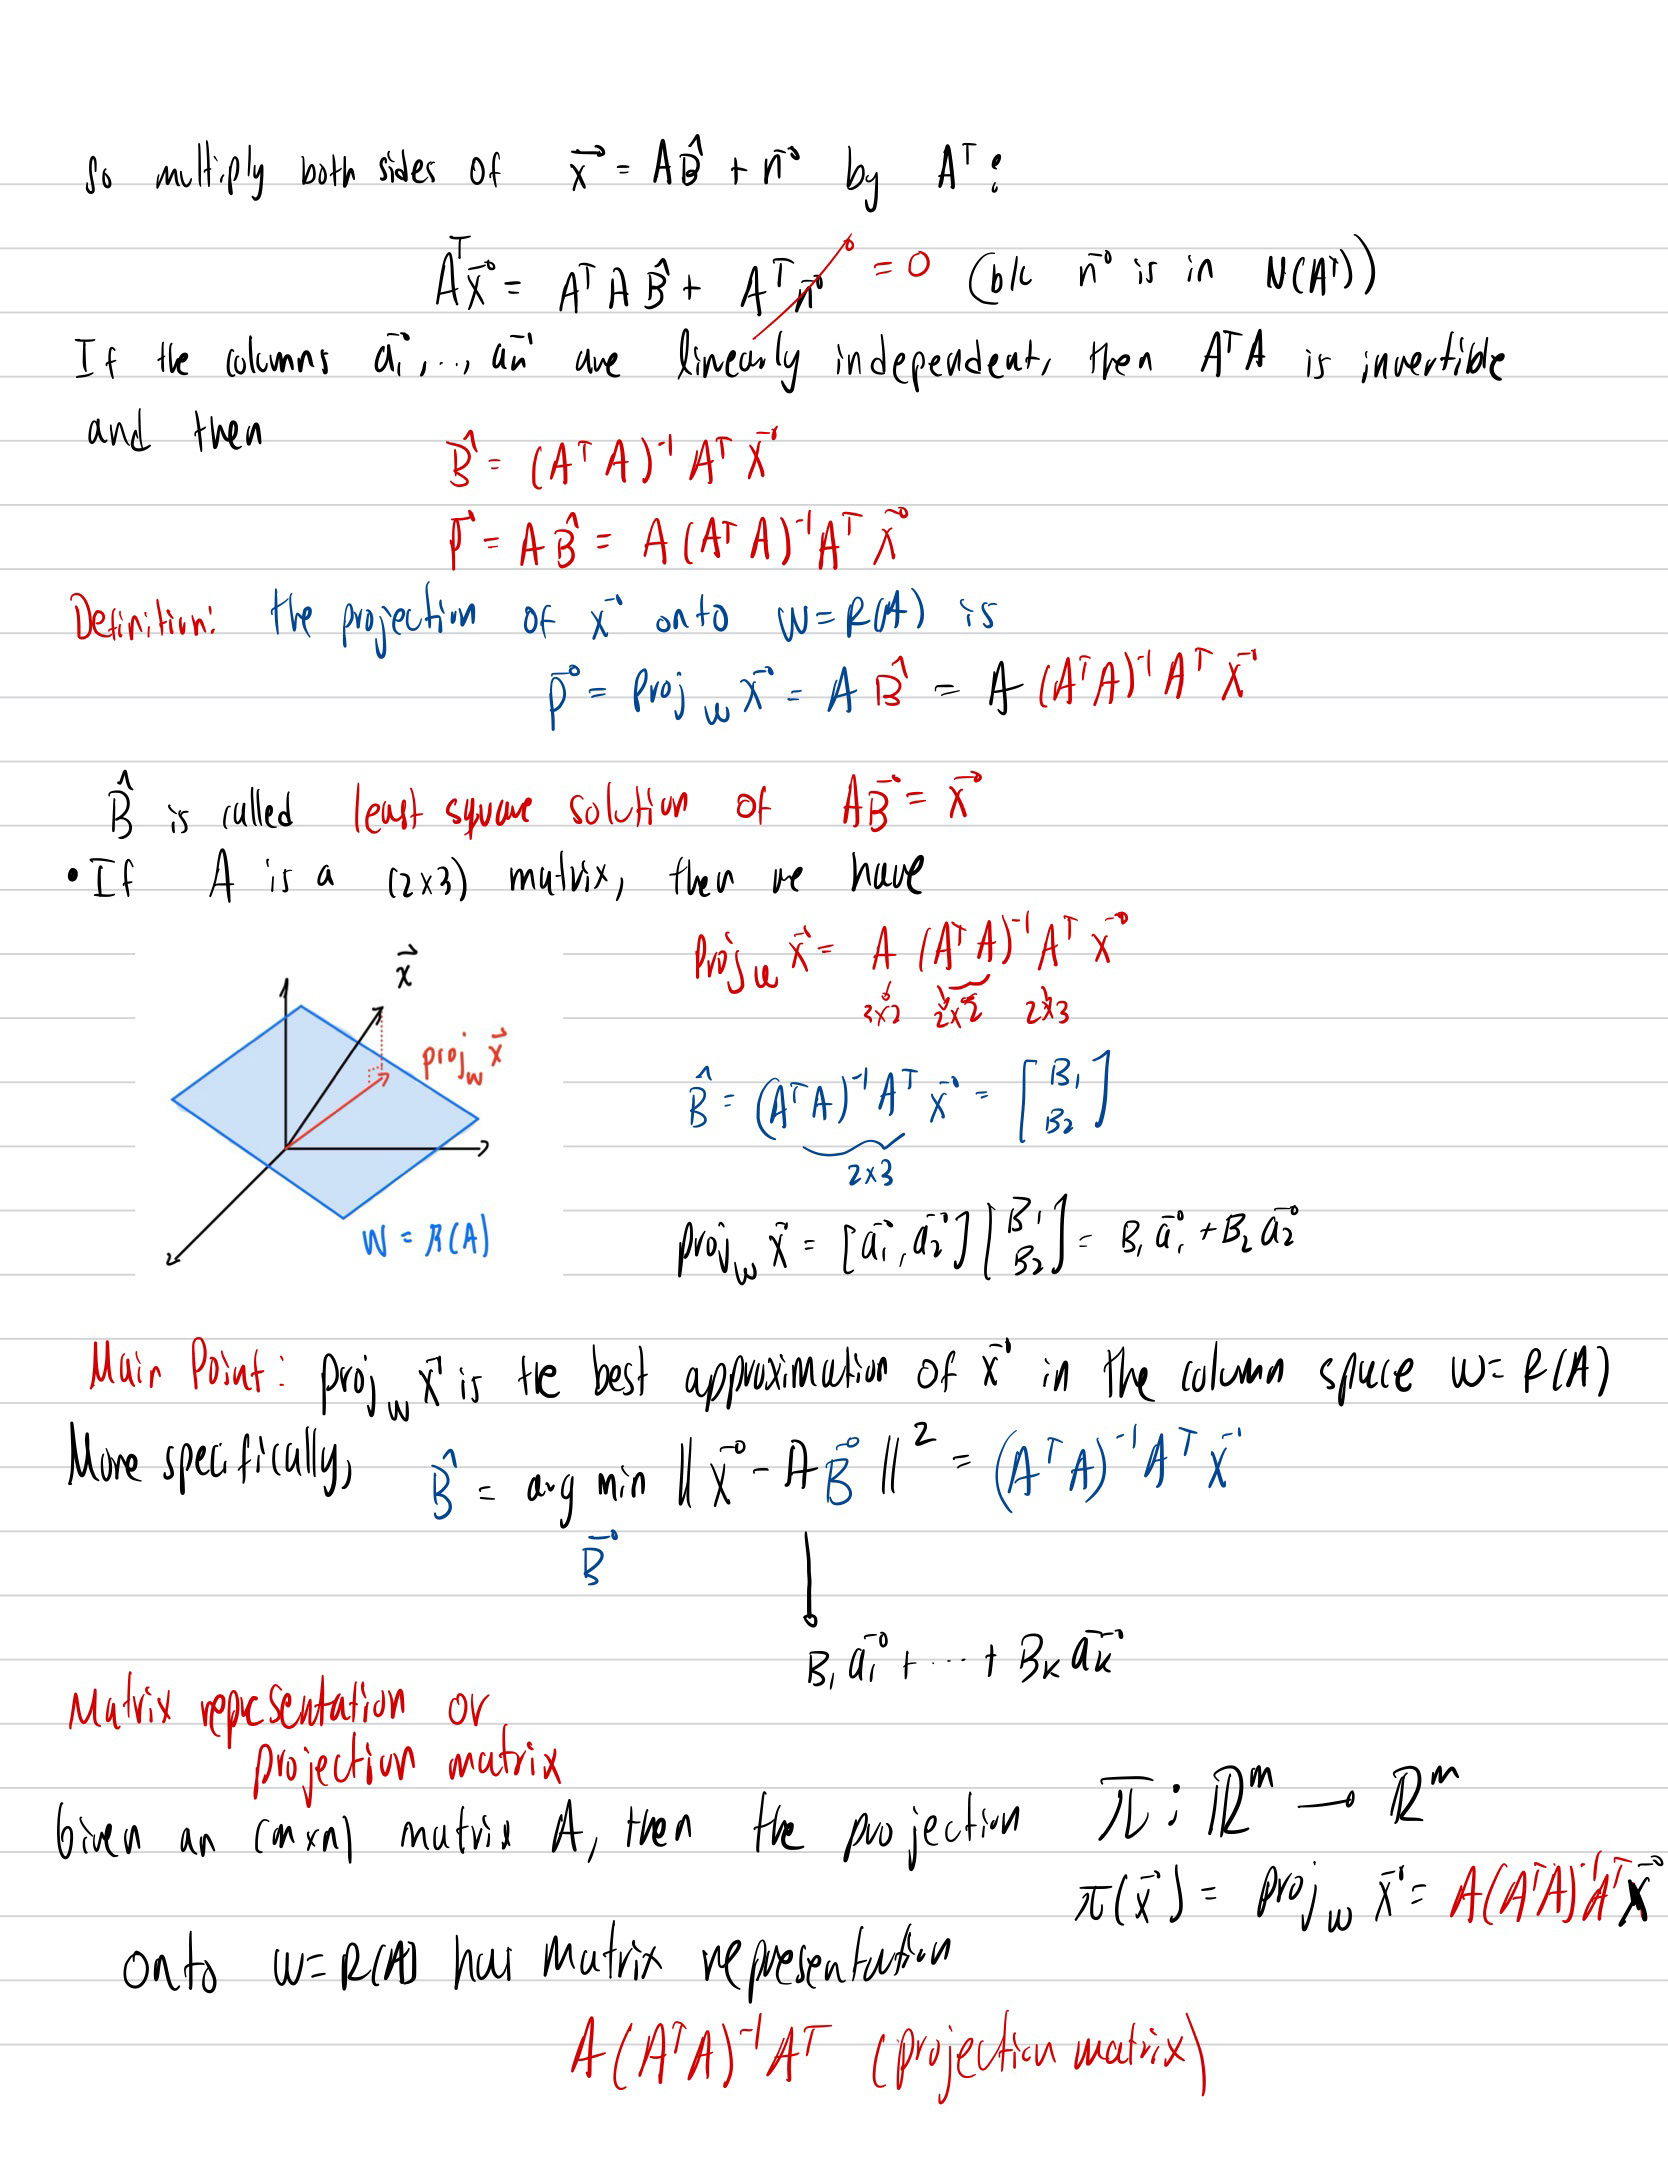 So multiply both sides of x⃗ = AB̂ + n⃗ by Aᵀ:
Aᵀx⃗ = AᵀAB̂ + Aᵀn⃗ = 0 (b/c n⃗ is in N(Aᵀ))
If the columns a⃗₁, ..., a⃗n are linearly independent, then AᵀA is invertible
and then
B̂ = (AᵀA)⁻¹Aᵀx⃗
p⃗ = AB̂ = A(AᵀA)⁻¹Aᵀx⃗
Definition: the projection of x⃗ onto W=R(A) is
p⃗ = proj_w x⃗ = AB̂ = A(AᵀA)⁻¹Aᵀx⃗
B̂ is called least square solution of AB⃗ = x⃗
• If A is a (2x3) matrix, then we have
Proj_w x⃗ = A (AᵀA)⁻¹Aᵀx⃗
3x2 2x2 2x3
x⃗
proj_w x⃗
W = R(A)
B̂ = (AᵀA)⁻¹Aᵀx⃗ = [B₁ B₂]
2x3
proj_w x⃗ = [a⃗₁, a⃗₂][B₁ B₂] = B₁a⃗₁ + B₂a⃗₂
Main Point: proj_w x⃗ is the best approximation of x⃗ in the column space W=R(A)
More specifically, B̂ = arg min ‖x⃗ - AB⃗‖² = (AᵀA)⁻¹Aᵀx⃗
B⃗
B₁a⃗₁ + ... + Bₖa⃗ₖ
Matrix representation or
projection matrix
Given an (mxn) matrix A, then the projection π: ℝᵐ → ℝᵐ
π(x⃗) = proj_w x⃗ = A(AᵀA)⁻¹Aᵀx⃗
onto W=R(A) has matrix representation
A(AᵀA)⁻¹Aᵀ (projection matrix)